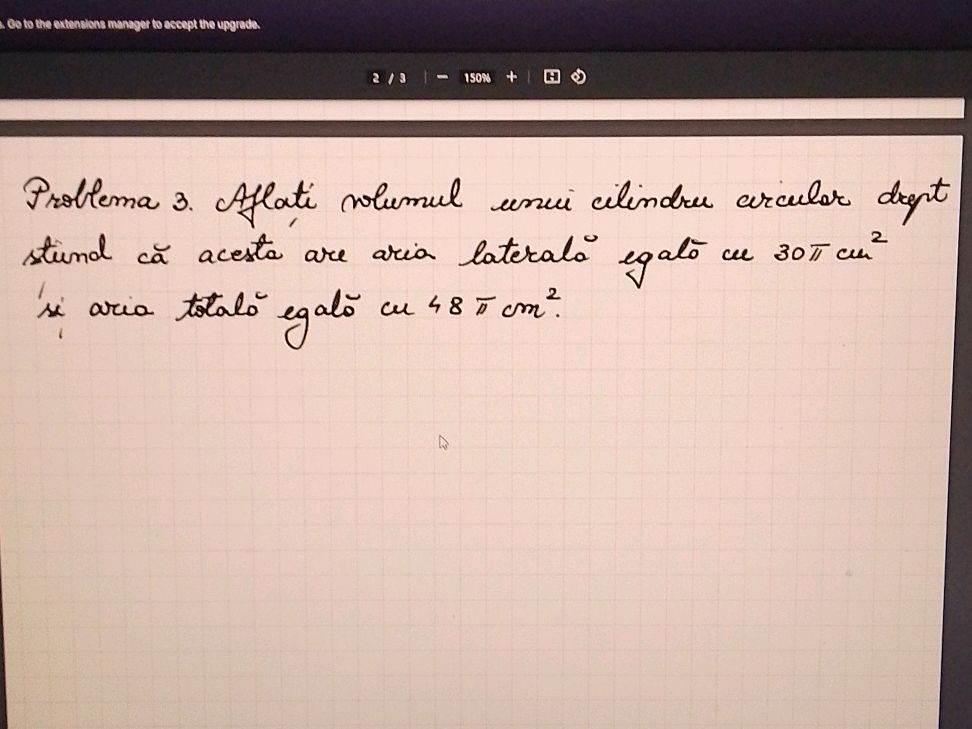 . Go to the extensions manager to accept the upgrade.
2 / 3 | − 150% + |
Problema 3. Aflați volumul unui cilindru circular drept
știind că acesta are aria laterală egală cu 30π cm²
și aria totală egală cu 48π cm².